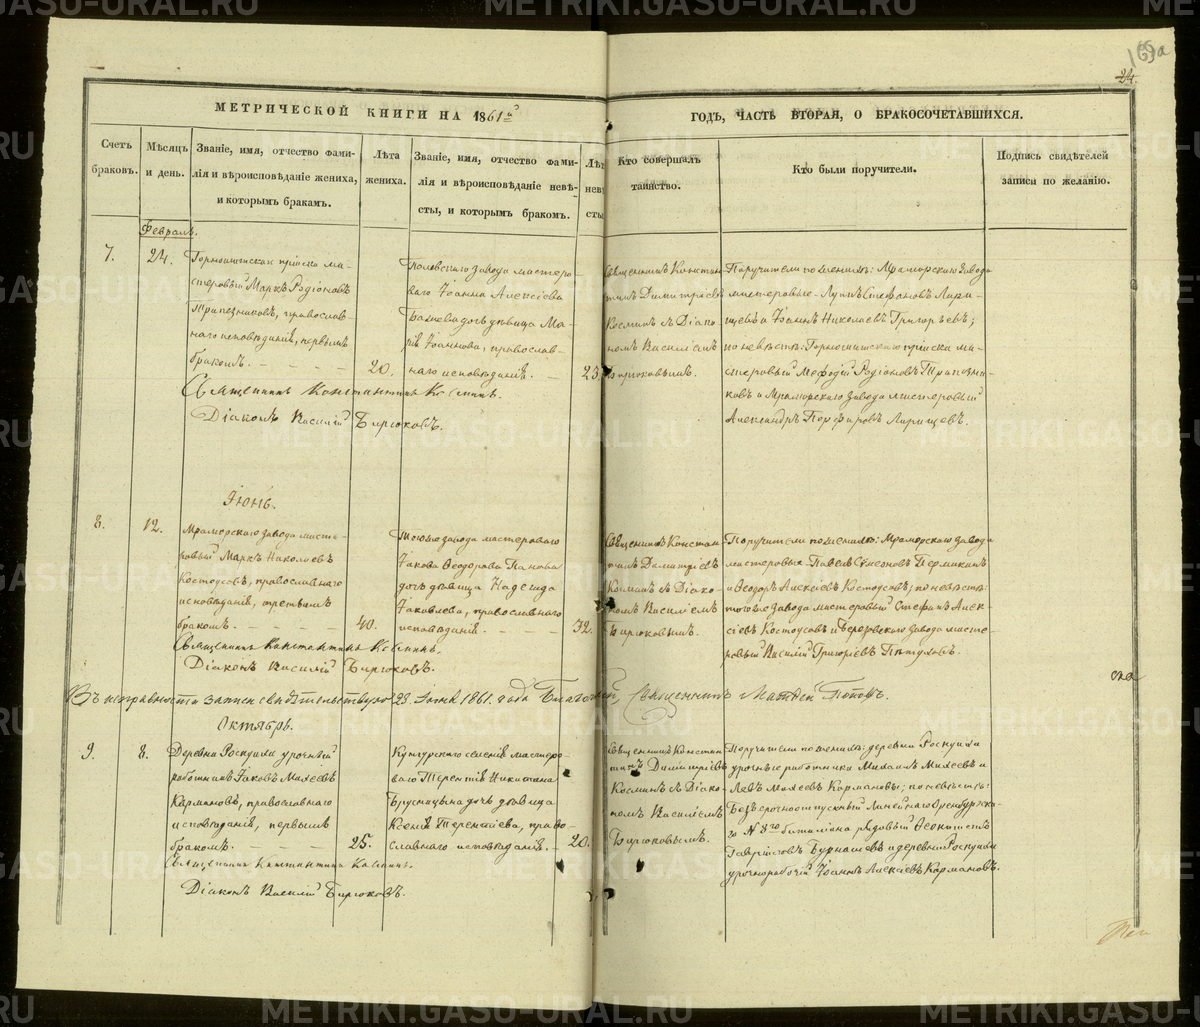 169а
24.
МЕТРИЧЕСКОЙ КНИГИ НА 1861й
ГОДЪ, ЧАСТЬ ВТОРАЯ, О БРАКОСОЧЕТАВШИХСЯ.
Счетъ
браковъ.
Мѣсяцъ
и день.
Званіе, имя, отчество фами-
лія и вѣроисповѣданіе жениха,
и которымъ бракамъ.
Лѣта
жениха.
Званіе, имя, отчество фами-
лія и вѣроисповѣданіе невѣ-
сты, и которымъ бракомъ.
Лѣт
невѣ
сты
Кто совершалъ
таинство.
Кто были поручители.
Подпись свидѣтелей
записи по желанію.
Февраль.
7.
24.
Горнощитскаго пріиска ма-
стеровый Маркъ Родіоновъ
Трапезниковъ, православ-
наго исповѣданія, первымъ
бракомъ.
20.
Полевскаго завода мастеро-
ваго Іоанна Алексіева
дочь дѣвица Ма-
рія Іоаннова, православ-
наго исповѣданія.
23.
Священникъ Констан-
тинъ Димитріевъ
Космин съ Діако-
номъ Василіемъ
Бирюковымъ.
Поручители по женихѣ: Мраморскаго завода
мастеровые Стефановъ Лари-
щевъ и Іоаннъ Николаевъ Григорьевъ;
по невѣстѣ: Горнощитскаго пріиска ма-
стеровый Мефодій Родіоновъ Трапезни-
ковъ и Мраморскаго завода мастеровый
Александръ Порфировъ Ларищевъ.
Священникъ Константинъ Космин.
Діаконъ Василій Бирюковъ.
Іюнь.
8.
12.
Мраморскаго завода масте-
ровый Маркъ Николаевъ
Костоусовъ, православнаго
исповѣданія, третьимъ
бракомъ.
40.
Того же завода мастероваго
Іакова Ѳеодорова Панова
дочь дѣвица Надежда
Іаковлева, православнаго
исповѣданія.
32.
Священникъ Констан-
тинъ Димитріевъ
Космин съ Діако-
номъ Василіемъ
Бирюковымъ.
Поручители по женихѣ: Мраморскаго завода
мастеровые Павелъ Симеоновъ Пермикинъ
и Ѳеодоръ Алексіевъ Костоусовъ; по невѣстѣ:
того же завода мастеровый Стефанъ Алек-
сіевъ Костоусовъ и Березовскаго завода масте-
ровый Василій Григоріевъ Пѣтуховъ.
Священникъ Константинъ Космин.
Діаконъ Василій Бирюковъ.
Въ исправности записи свидѣтельствую 23 Іюня 1861 года Благочинный, Священникъ Матѳей Поповъ.
Октябрь.
9.
8.
Деревни Роскуихи урочный
работникъ Іаковъ Михеевъ
Кармановъ, православнаго
исповѣданія, первымъ
бракомъ.
25.
Кунгурскаго селенія мастеро-
ваго Терентія Никитина
Брусницына дочь дѣвица
Ксенія Терентіева, право-
славнаго исповѣданія.
20.
Священникъ Констан-
тинъ Димитріевъ
Космин съ Діако-
номъ Василіемъ
Бирюковымъ.
Поручители по женихѣ: деревни Роскуихи
урочные работники Михаилъ Михеевъ и
Левъ Михеевъ Кармановы; по невѣстѣ:
Безсрочноотпускный Линейнаго Оренбургска-
го № 8го баталіона рядовый Ѳеоктистъ
Гавріиловъ Бурнашевъ и деревни Роскуихи
урочнорабочій Іоаннъ Алексіевъ Кармановъ.
Священникъ Константинъ Космин.
Діаконъ Василій Бирюковъ.
METRIKI.GASO-URAL.RU